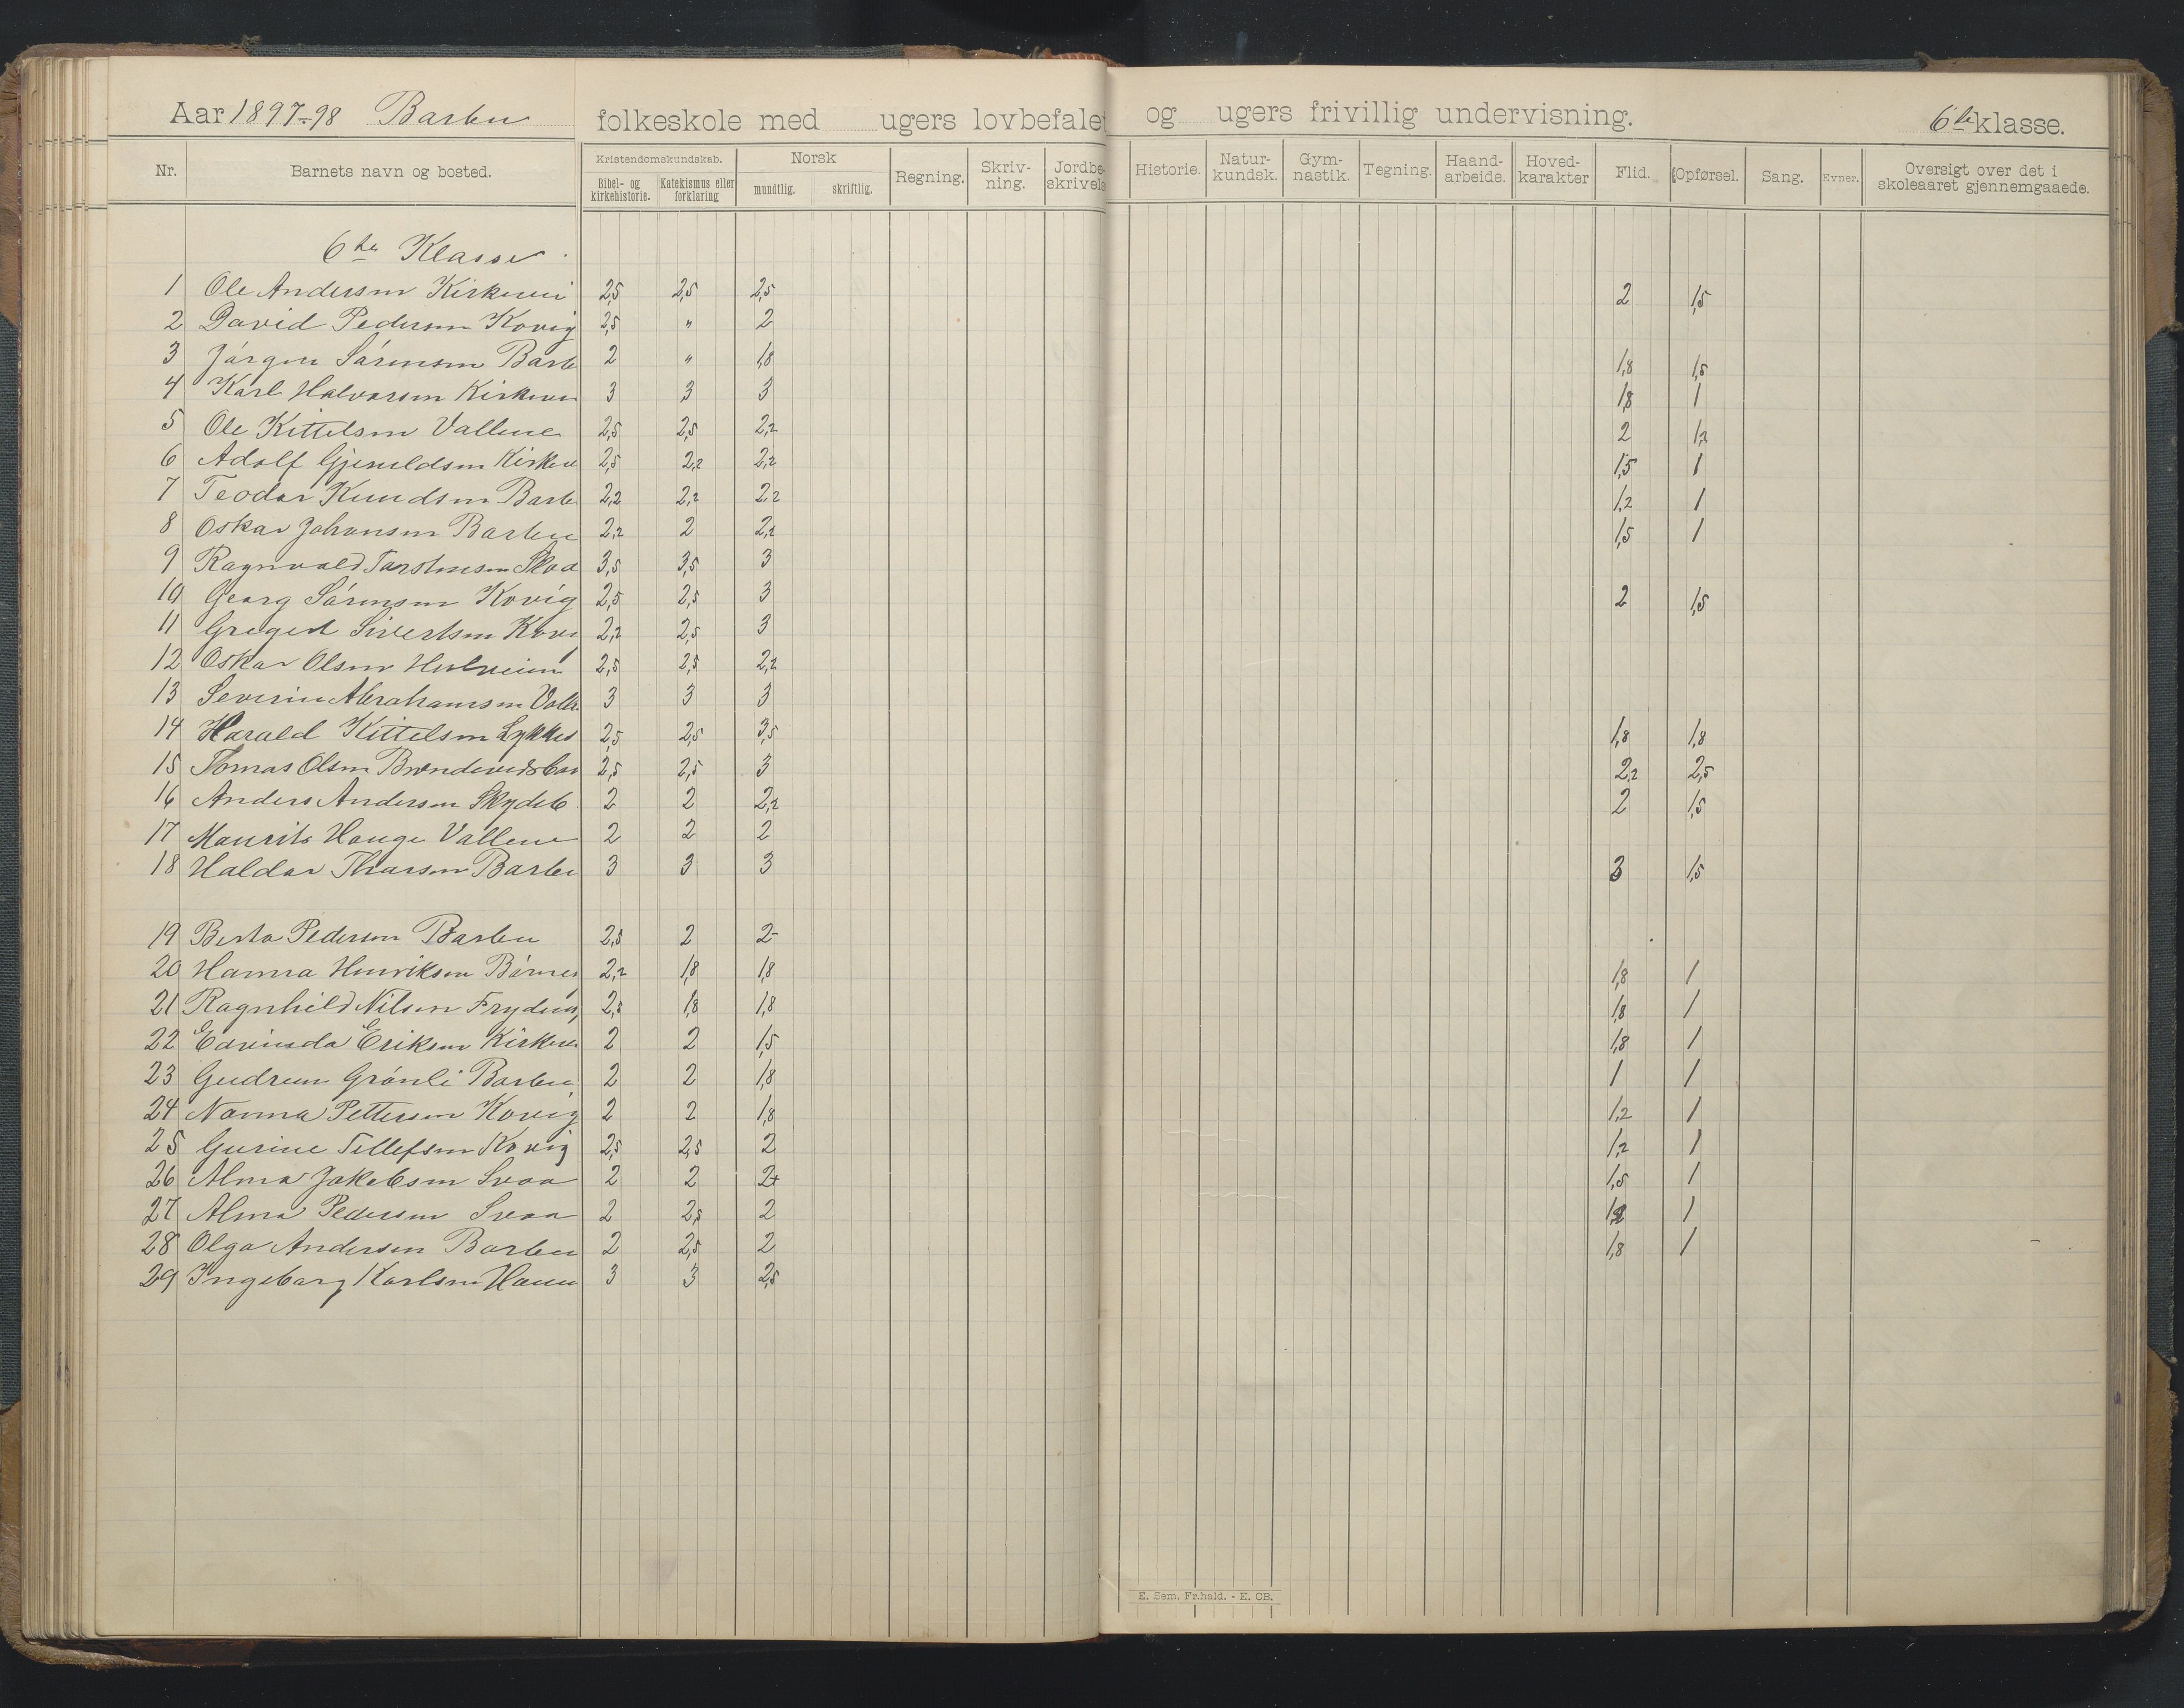 Aar 1897-98 Barbu folkeskole med ugers lovbefalet og ugers frivillig undervisning. 6te klasse.
Nr. Barnets navn og bosted. Kristendomskundskab. Bibel- og kirkehistorie. Katekismus eller forklaring Norsk mundtlig. skriftlig. Regning. Skriv-ning. Jordbe-skrivels Historie. Natur-kundsk. Gym-nastik. Tegning. Haand-arbeide. Hoved-karakter Flid. Opførsel. Sang. Evner. Oversigt over det i skoleaaret gjennemgaaede.
6te Klasse
1 Ole Andersen Kirkevei 2,5 2,5 2,5 2 1,5
2 David Pedersen Kovig 2,5 " 2
3 Jørgen Sørensen Barb 2 " 1,8 1,8 1,5
4 Karl Halvorsen Kirkevei 3 3 3 1,8 1
5 Ole Kittelsen Vallene 2,5 2,5 2,2 2 1,2
6 Adolf Gjeruldsen Kirkev 2,5 2,2 2,2 1,5 1
7 Teodor Knudsen Barb 2,2 2,2 2,2 1,2 1
8 Oskar Johansen Barbu 2,2 2 2,2 1,5 1
9 Ragnvald Torstensen 3,5 3,5 3
10 Georg Sørensen Kovig 2,5 2,5 3 2 1,5
11 Sivertsen Kovi 2,2 2,5 3
12 Oskar Olsen 2,5 2,5 2,2
13 Severin Abrahamsen Valle 3 3 3
14 Harald Kittelsen Lykkes 2,5 2,5 3,5 1,8 1,8
15 Tomas Olsen 2,5 2,5 3 2,2 2,5
16 Anders Andersen Skydeb 2 2 2,2 2 1,5
17 Maurits Hauge Vallene 2 2 2
18 Haldor Thorsen Barbu 3 3 3 3 1,5
19 Berta Pedersen Barbu 2,5 2 2-
20 Hanna Henriksen 2,2 1,8 1,8 1,8 1
21 Ragnhild Nilsen 2,5 1,8 1,8 1,8 1
22 Eriksen Kirkevei 2 2 1,5 1,8 1
23 Gudrun Grønli Barbu 2 2 1,8 1 1
24 Nanna Pettersen Kovig 2 2 1,8 1,2 1
25 Gurine Tellefsen Kovig 2,5 2,5 2 1,2 1
26 Alma Jakobsen Svaa 2 2 2+ 1,5 1
27 Alma Pedersen Svaa 2 2,5 2 1
28 Olga Andersen Barbu 2 2,5 2 1,8 1
29 Ingeborg Karlsen 3 3 2,5
E. Sem, Fr.hald. - E. CB.